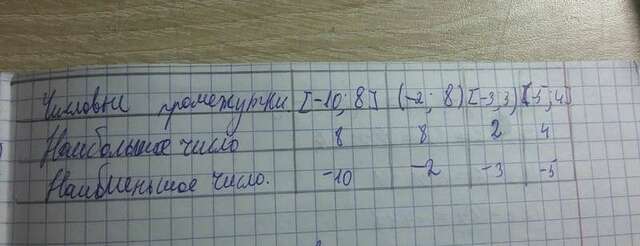 Числовые промежутки [-10; 8] (-2; 8) [-3; 3) [-5; 4]
Наибольшое число 8 8 2 4
Наибменьшое число. -10 -2 -3 -5